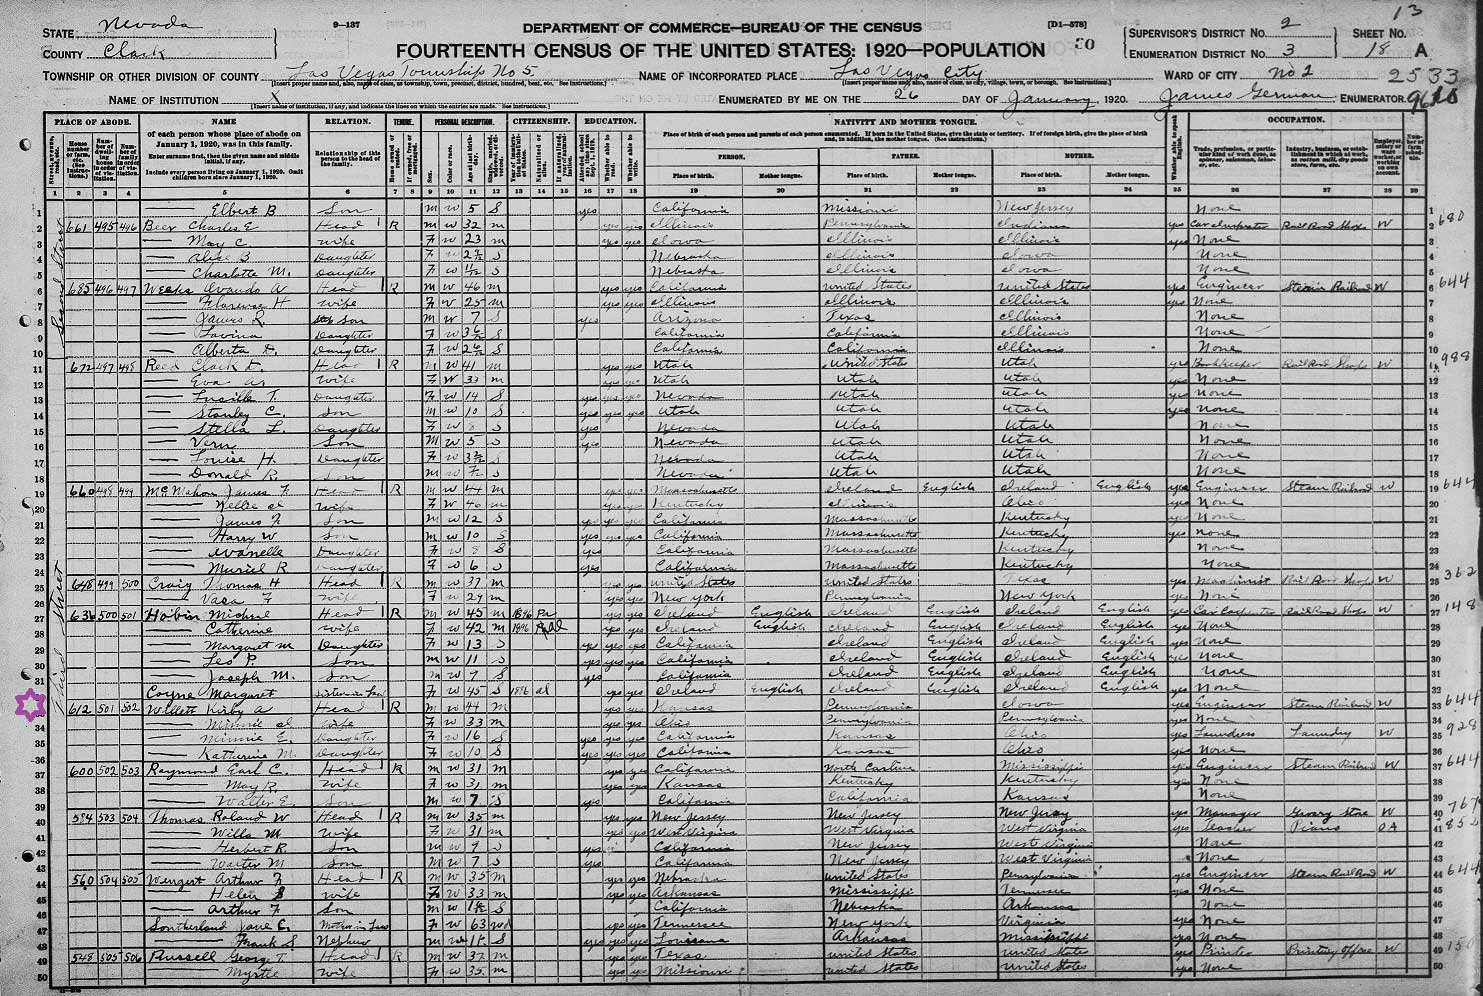 STATE Nevada
COUNTY Clark
9-137
DEPARTMENT OF COMMERCE—BUREAU OF THE CENSUS
[D1-578]
FOURTEENTH CENSUS OF THE UNITED STATES: 1920—POPULATION
SUPERVISOR'S DISTRICT No. 2
ENUMERATION DISTRICT No. 3
SHEET No. 13
18 A
TOWNSHIP OR OTHER DIVISION OF COUNTY Las Vegas Township No 5
NAME OF INCORPORATED PLACE Las Vegas City
WARD OF CITY No 2
2533
NAME OF INSTITUTION X
ENUMERATED BY ME ON THE 26 DAY OF January, 1920. James German ENUMERATOR
PLACE OF ABODE. NAME RELATION. TENURE. PERSONAL DESCRIPTION. CITIZENSHIP. EDUCATION. NATIVITY AND MOTHER TONGUE. OCCUPATION.
of each person whose place of abode on January 1, 1920, was in this family.
Enter surname first, then the given name and middle initial, if any.
Include every person living on January 1, 1920. Omit children born since January 1, 1920.
Relationship of this person to the head of the family.
Place of birth of each person and parents of each person enumerated. If born in the United States, give the state or territory. If of foreign birth, give the place of birth and, in addition, the mother tongue. (See instructions.)
PERSON. FATHER. MOTHER.
Place of birth. Mother tongue. Place of birth. Mother tongue. Place of birth. Mother tongue.
1 2 3 4 5 6 7 8 9 10 11 12 13 14 15 16 17 18 19 20 21 22 23 24 25 26 27 28 29
Second Street
Third Street
1 — Elbert B Son M W 5 S yes California Missouri New Jersey None
2 661 495 496 Beer Charles E Head 1 R M W 32 M yes yes Illinois Pennsylvania Indiana yes Car Inspector Rail Road Shops W 680
3 — May C. Wife F W 23 M yes yes Iowa Illinois Illinois yes None
4 — Alice B Daughter F W 2½ S Nebraska Illinois Iowa None
5 — Charlotte M. Daughter F W S Nebraska Illinois Iowa None
6 685 496 497 Weeks A Head 1 R M W 46 M yes yes California United States United States yes Engineer Steam Railroad W 644
7 — Florence H Wife F W 25 M yes yes Illinois Illinois Illinois yes None
8 — James R. Son M W 7 S yes Arizona Texas Illinois None
9 — Lavina Daughter F W S California California Illinois None
10 — Alberta D. Daughter F W S California California Illinois None
11 672 497 498 Reed Clark D. Head 1 R M W 41 M yes yes Utah United States Utah yes Bookkeeper Rail Road Shops W 988
12 — Eva Wife F W 33 M yes yes Utah Utah Utah yes None
13 — Lucille T. Daughter F W 14 S yes yes yes Nevada Utah Utah yes None
14 — Stanley C. Son M W 10 S yes yes yes Utah Utah Utah yes None
15 — Stella L. Daughter F W 8 S yes Nevada Utah Utah None
16 — Vern Son M W 5 S yes Nevada Utah Utah None
17 — Louise H. Daughter F W S Nevada Utah Utah None
18 — Donald R. Son M W S Nevada Utah Utah None
19 660 498 499 McMahon James F Head 1 R M W 44 M yes yes Massachusetts Ireland English Ireland English yes Engineer Steam Railroad W 644
20 — Nellie Wife F W 40 M yes yes Kentucky Illinois Ohio yes None
21 — James F Son M W 12 S yes yes yes California Massachusetts Kentucky yes None
22 — Harry W Son M W 10 S yes yes yes California Massachusetts Kentucky yes None
23 — Daughter F W 8 S yes California Massachusetts Kentucky None
24 — Muriel R Daughter F W 6 S yes California Massachusetts Kentucky None
25 648 499 500 Craig Thomas H Head 1 R M W 37 M yes yes United States United States Texas yes Machinist Rail Road Shops W 362
26 — F Wife F W 29 M yes yes New York Pennsylvania New York yes None
27 636 500 501 Hobin Head 1 R M W 45 M 1896 Pa yes yes Ireland English Ireland English Ireland English yes Car Carpenter Rail Road Shops W 148
28 — Catherine Wife F W 42 M 1896 yes yes Ireland English Ireland English Ireland English yes None
29 — Margaret M Daughter F W 13 S yes yes yes California Ireland English Ireland English yes None
30 — Leo P. Son M W 11 S yes yes yes California Ireland English Ireland English yes None
31 — Joseph M. Son M W 7 S yes California Ireland English Ireland English None
32 Coyne Margaret Sister in Law F W 45 S 1896 al yes yes Ireland English Ireland English Ireland English yes None
33 612 501 502 Willett Kirby A Head 1 R M W 44 M yes yes Kansas Pennsylvania Iowa yes Engineer Steam Railroad W 644
34 — Minnie Wife F W 33 M yes yes Ohio Pennsylvania Pennsylvania yes None
35 — Minnie E. Daughter F W 16 S yes yes yes California Kansas Ohio yes Laundress Laundry W 928
36 — Katherine M. Daughter F W 10 S yes yes yes California Kansas Ohio yes None
37 600 502 503 Raymond Earl C. Head 1 R M W 31 M yes yes California North Carolina Mississippi yes Engineer Steam Railroad W 644
38 — May R. Wife F W 31 M yes yes Kansas Kentucky Kentucky yes None
39 — Walter E. Son M W 7 S yes California California Kansas None
40 584 503 504 Thomas Roland W Head 1 R M W 35 M yes yes New Jersey New Jersey New Jersey yes Manager Store W 767
41 — Willa M Wife F W 31 M yes yes West Virginia West Virginia West Virginia yes Teacher Piano OA
42 — Herbert R. Son M W 9 S yes California New Jersey West Virginia None
43 — Walter M Son M W 7 S yes California New Jersey West Virginia None
44 560 504 505 Wengert Arthur F Head 1 R M W 35 M yes yes Nebraska United States Pennsylvania yes Engineer Steam Rail Road W 644
45 — Helen Wife F W 33 M yes yes Arkansas Mississippi Tennessee yes None
46 — Arthur F. Son M W S California Nebraska Arkansas None
47 Southerland Jane E. Mother in Law F W 63 Wd yes yes Tennessee New York Virginia yes None
48 — Frank S Nephew M W S yes yes yes Louisiana Arkansas Mississippi yes None
49 548 505 506 Russell George T. Head 1 R M W 37 M yes yes Texas United States United States yes Printer Printing Office W
50 — Myrtle Wife F W 35 M yes yes Missouri United States United States yes None